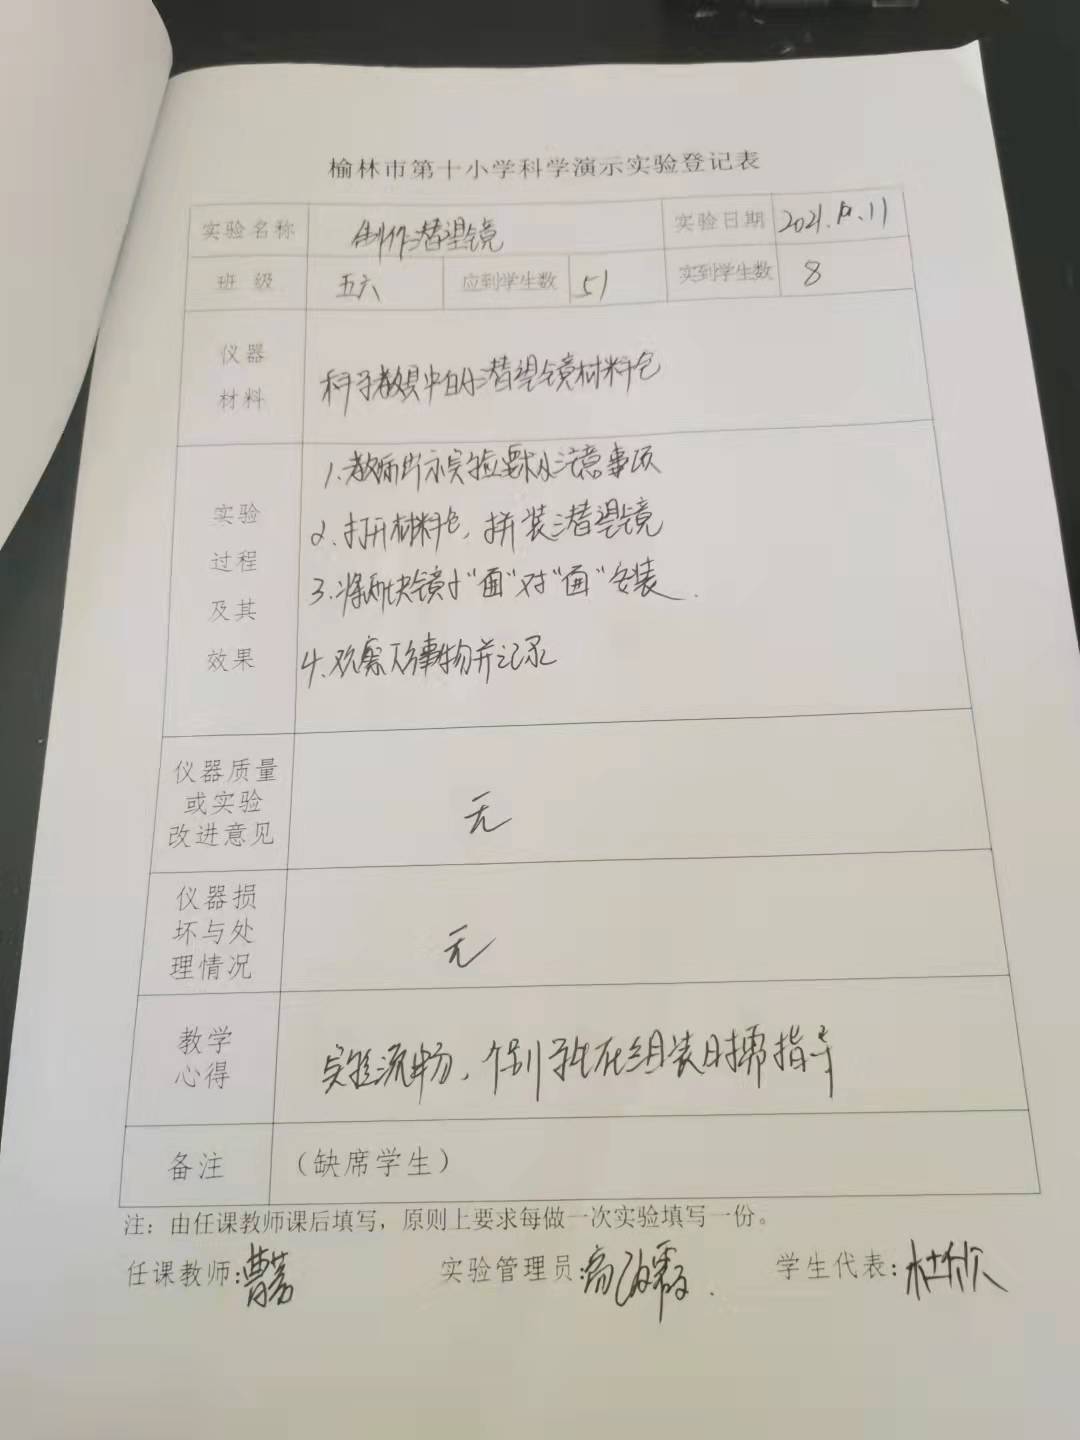 榆林市第十小学科学演示实验登记表
实验名称 制作潜望镜 实验日期 2021.10.11
班级 五六 应到学生数 51 实到学生数 8
仪器
材料
科学教具中的潜望镜材料包
实验
过程
及其
效果
1.教师出示实验要求及注意事项
2.打开材料包,拼装潜望镜
3.将两块镜子"面"对"面"安装.
4.观察事物并记录
仪器质量
或实验
改进意见
无
仪器损
坏与处
理情况
无
教学
心得
实验流畅,个别学生在组装时需指导
备注 (缺席学生)
注:由任课教师课后填写,原则上要求每做一次实验填写一份。
任课教师: 实验管理员: 学生代表: